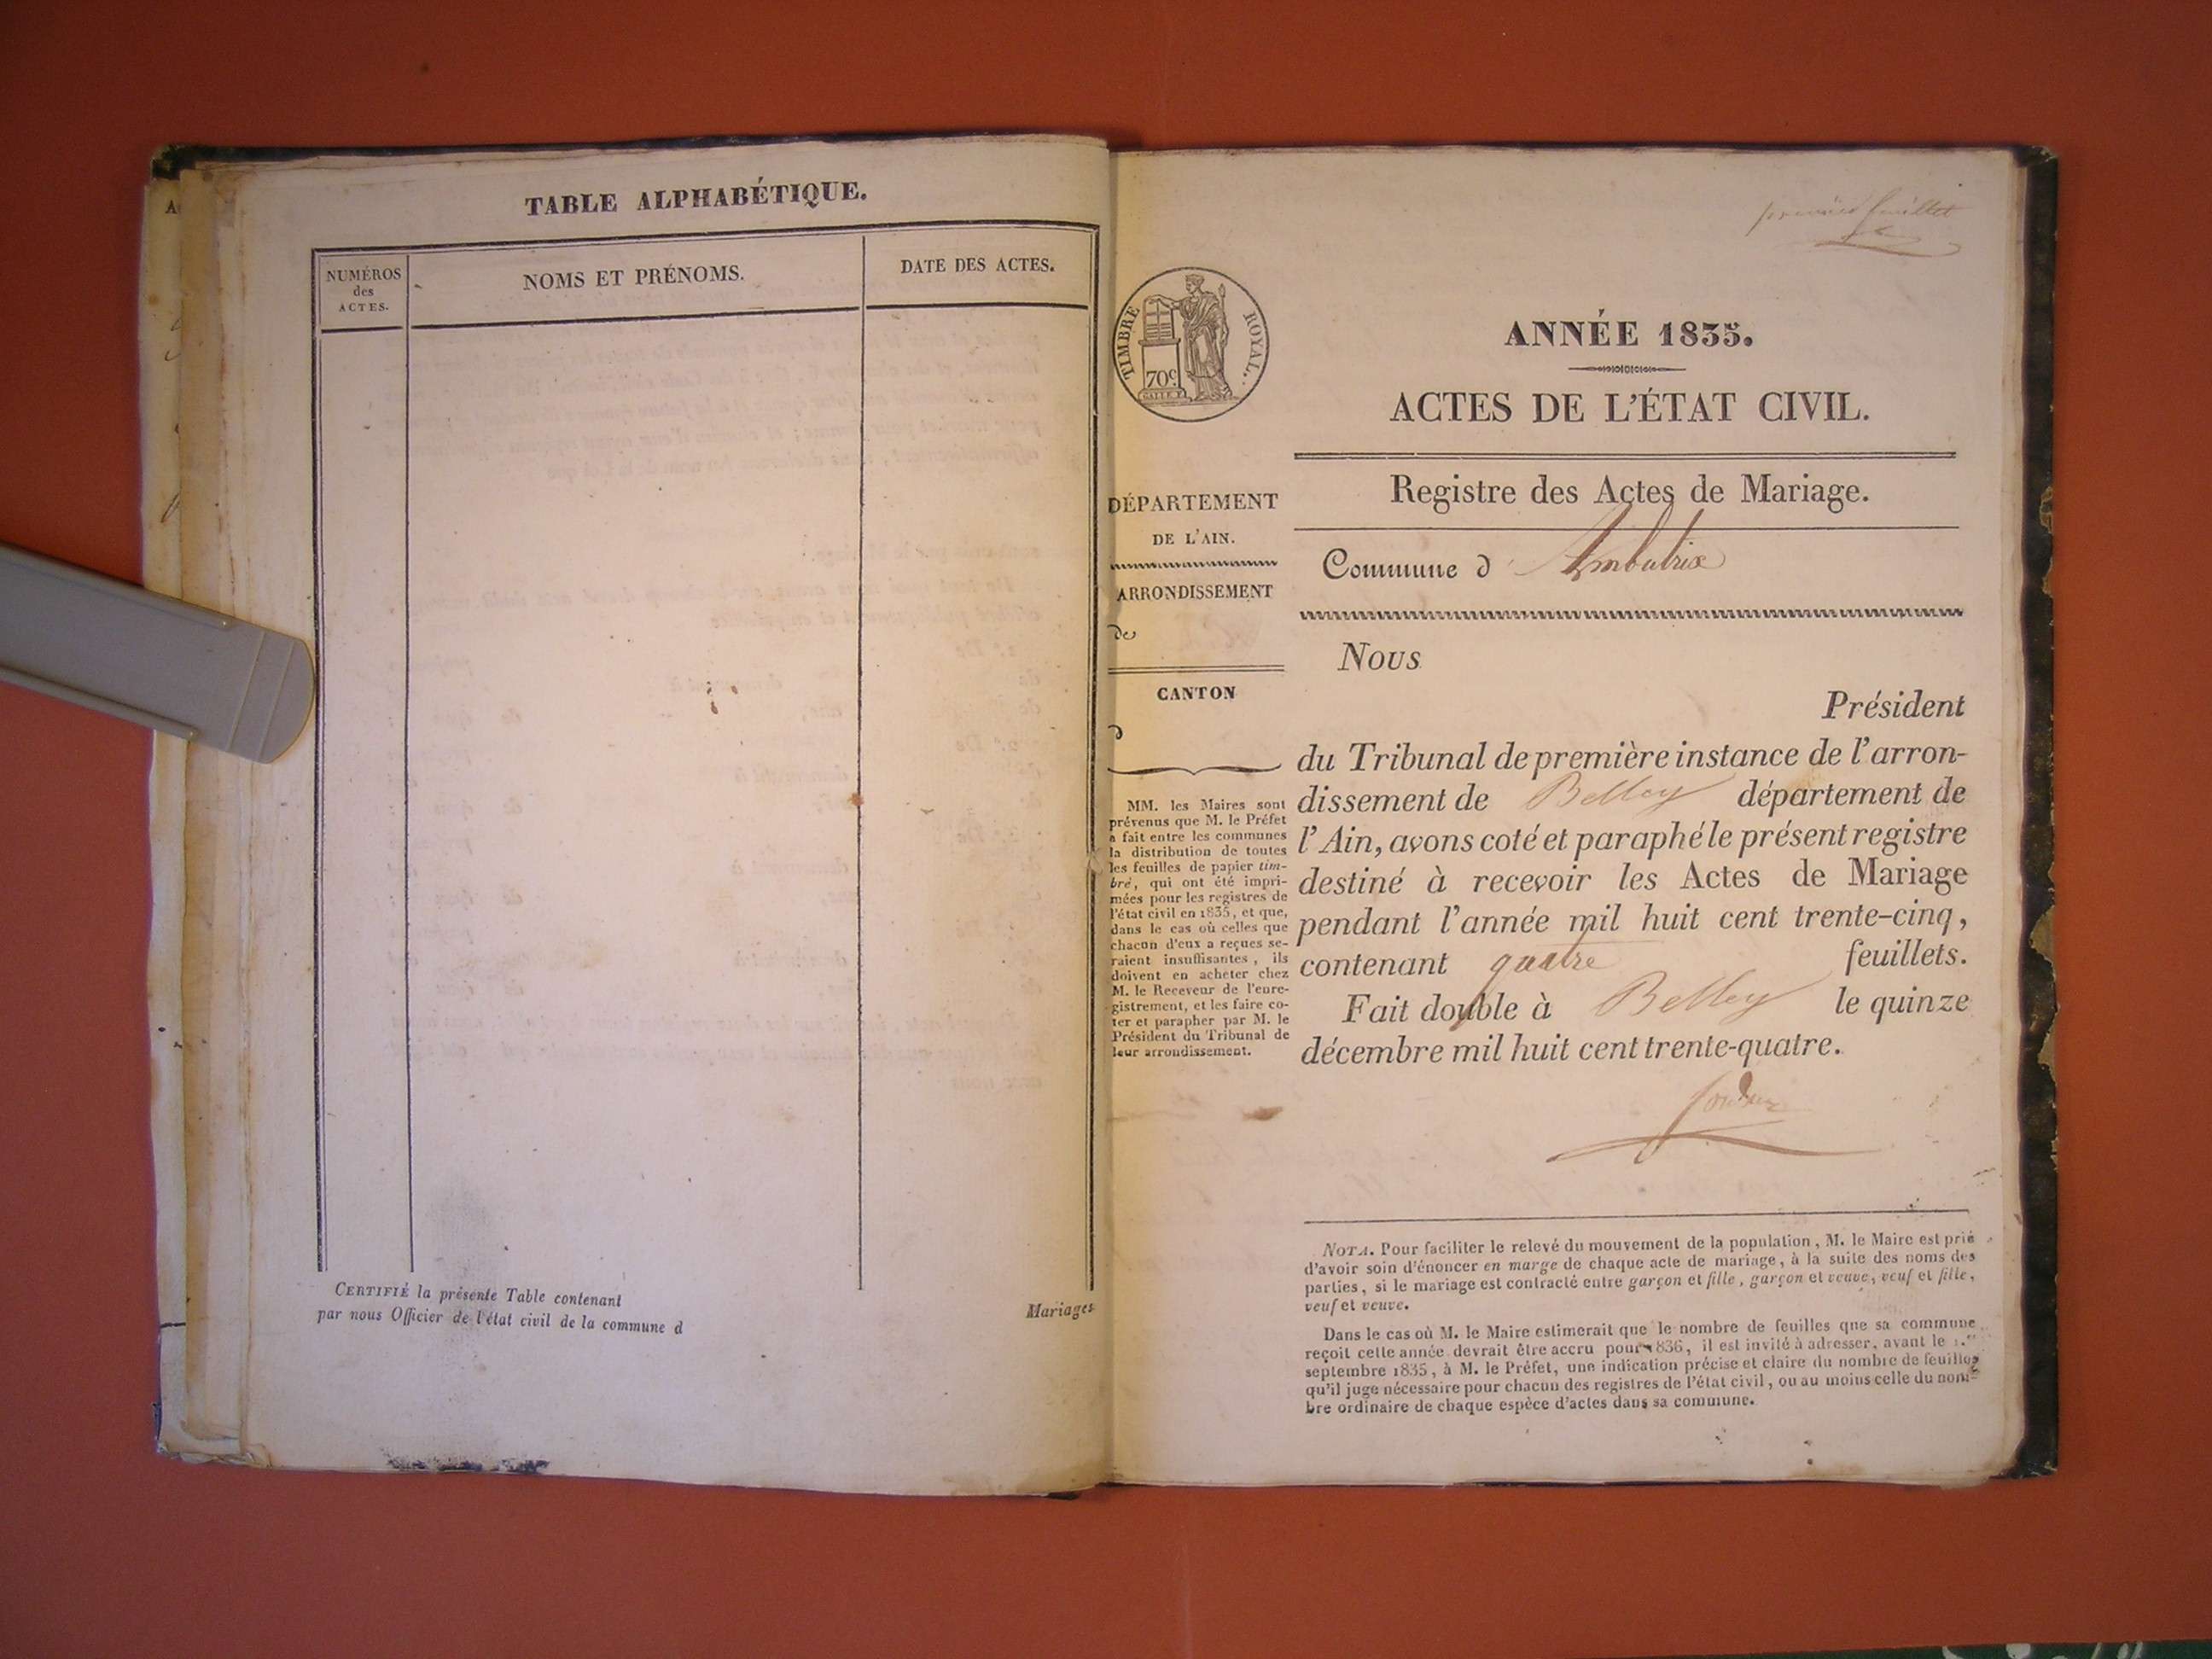 TABLE ALPHABÉTIQUE.
NUMÉROS
des
ACTES.
NOMS ET PRÉNOMS.
DATE DES ACTES.
CERTIFIÉ la présente Table contenant
par nous Officier de l'état civil de la commune d
Mariages
premier feuillet
TIMBRE ROYAL.
70c
ANNÉE 1835.
ACTES DE L'ÉTAT CIVIL.
Registre des Actes de Mariage.
Commune d Ambutrix
DÉPARTEMENT
DE L'AIN.
ARRONDISSEMENT
de
CANTON
d
MM. les Maires sont
prévenus que M. le Préfet
a fait entre les communes
la distribution de toutes
les feuilles de papier tim-
bré, qui ont été impri-
mées pour les registres de
l'état civil en 1835, et que,
dans le cas où celles que
chacun d'eux a reçues se-
raient insuffisantes, ils
doivent en acheter chez
M. le Receveur de l'enre-
gistrement, et les faire co-
ter et parapher par M. le
Président du Tribunal de
leur arrondissement.
Nous
Président
du Tribunal de première instance de l'arron-
dissement de Belley département de
l'Ain, avons coté et paraphé le présent registre
destiné à recevoir les Actes de Mariage
pendant l'année mil huit cent trente-cinq,
contenant quatre feuillets.
Fait double à Belley le quinze
décembre mil huit cent trente-quatre.
NOTA. Pour faciliter le relevé du mouvement de la population, M. le Maire est prié
d'avoir soin d'énoncer en marge de chaque acte de mariage, à la suite des noms des
parties, si le mariage est contracté entre garçon et fille, garçon et veuve, veuf et fille,
veuf et veuve.
Dans le cas où M. le Maire estimerait que le nombre de feuilles que sa commune
reçoit cette année devrait être accru pour 1836, il est invité à adresser, avant le 1.er
septembre 1835, à M. le Préfet, une indication précise et claire du nombre de feuilles
qu'il juge nécessaire pour chacun des registres de l'état civil, ou au moins celle du nom-
bre ordinaire de chaque espèce d'actes dans sa commune.